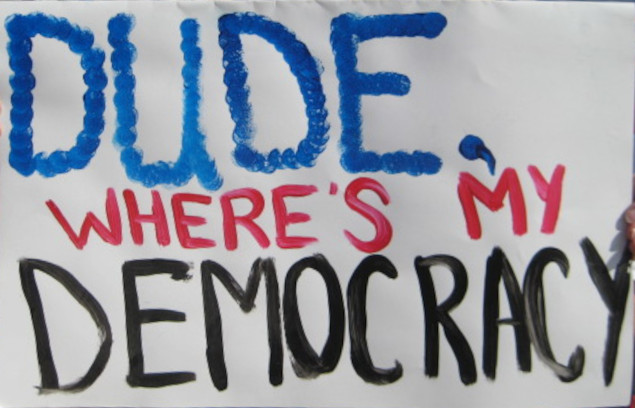 DUDE,
WHERE'S MY
DEMOCRACY